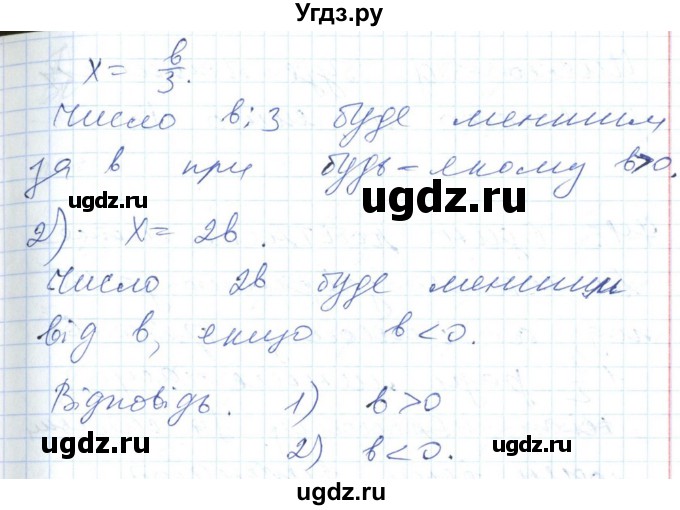 Угдз.ру
x = в/3.
Число в:3 буде меншим
за в при будь-якому в>0.
ugdz.ru ugdz.ru
2). x = 2в.
Число 2в буде меншим
від в, якщо в<0.
ugdz.ru
Відповідь. 1) в>0
ugdz.ru ugdz.ru
2) в<0.
ugdz.ru